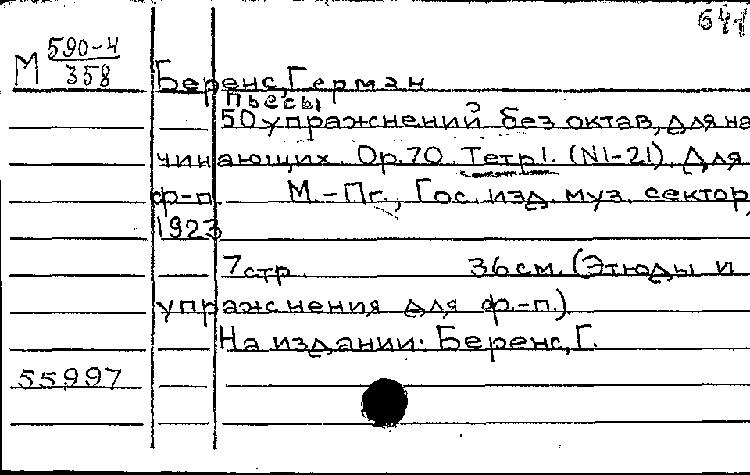 641
М 590-4
358
Беренс, Герман
пьесы
50 упражнений без октав, для на
чинающих. Op.70. Тетр1. (N1-21). Для
ф-п. М.-Пг., Гос. изд. муз. сектор,
1923
7 стр. 36 см. (Этюды и
упражнения для ф.-п.)
На издании: Беренс, Г.
55997